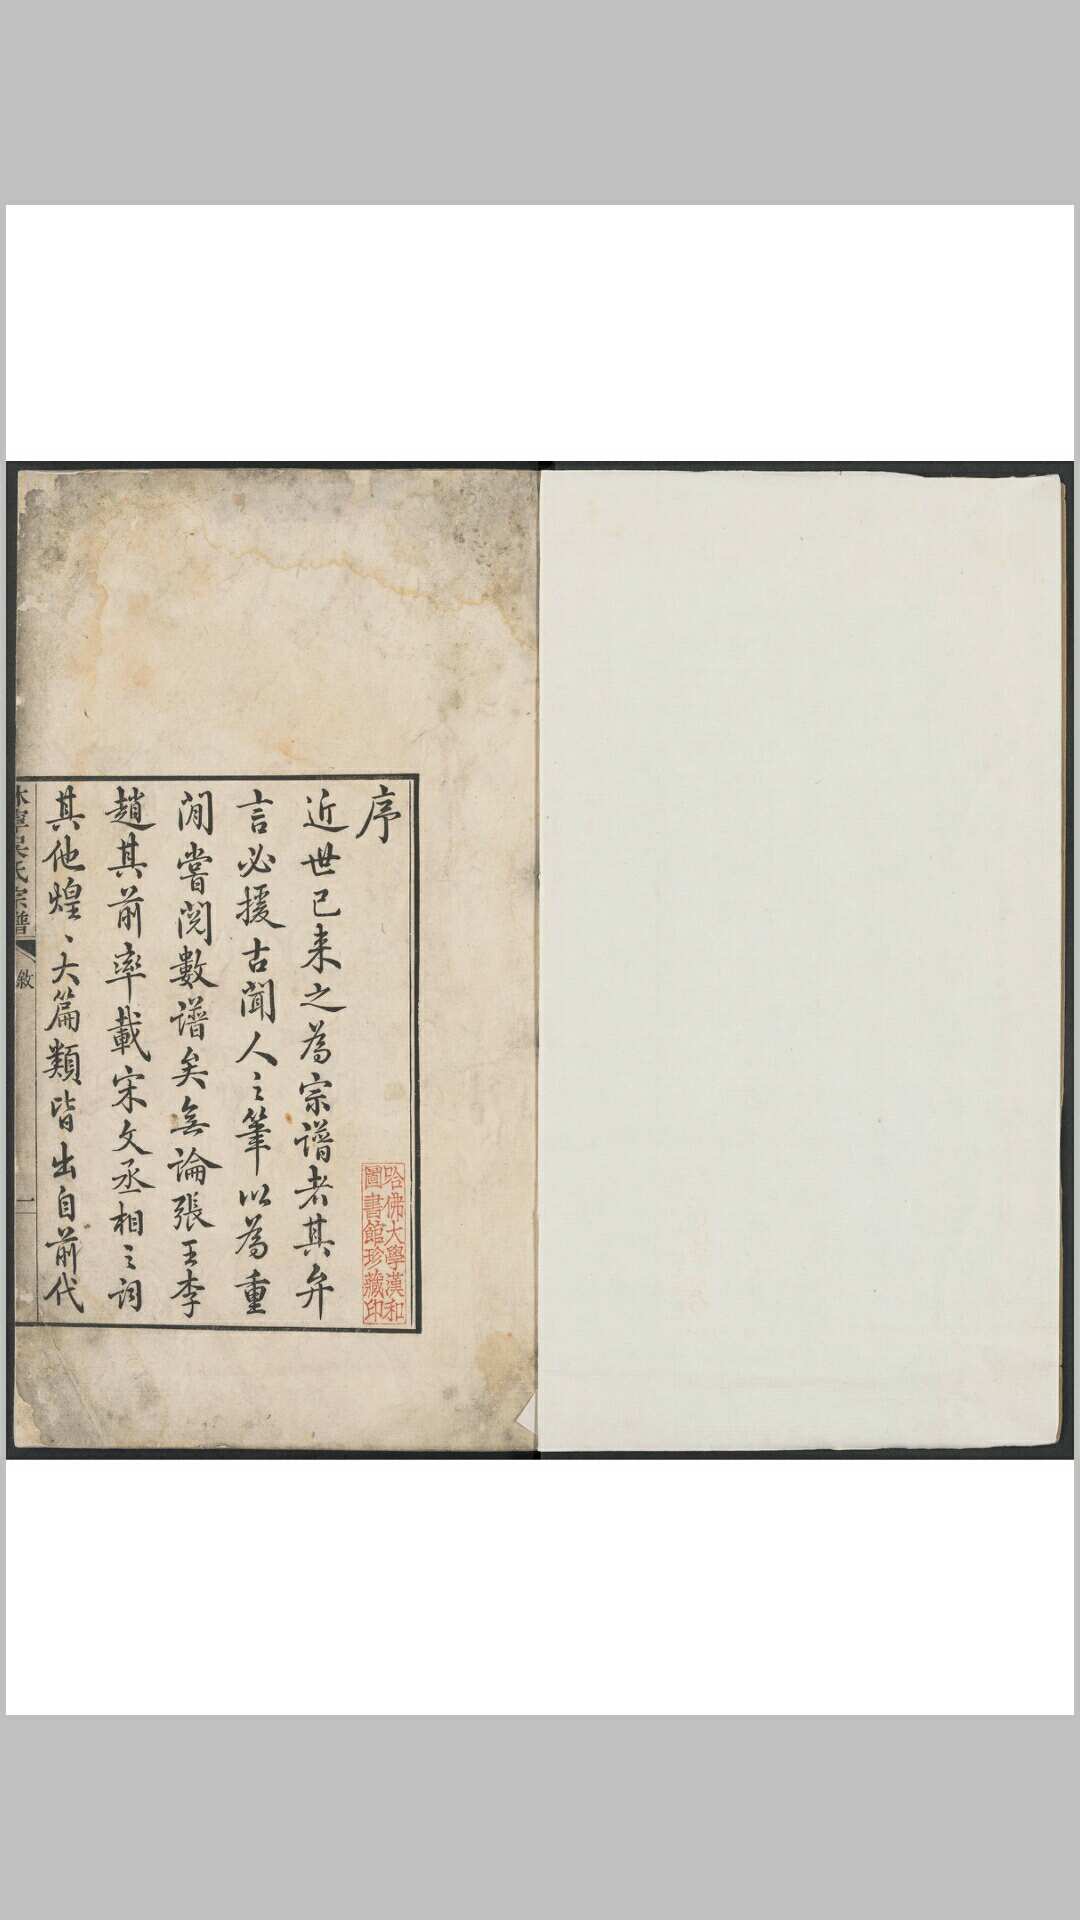 序
近世已来之為宗譜者其弁
言必援古聞人之筆以為重
閒嘗閲數譜矣無論張王李
趙其前率載宋文丞相之詞
其他煌、大篇類皆出自前代
休寧吳氏宗譜
敘
一
哈佛大學漢和
圖書館珍藏印